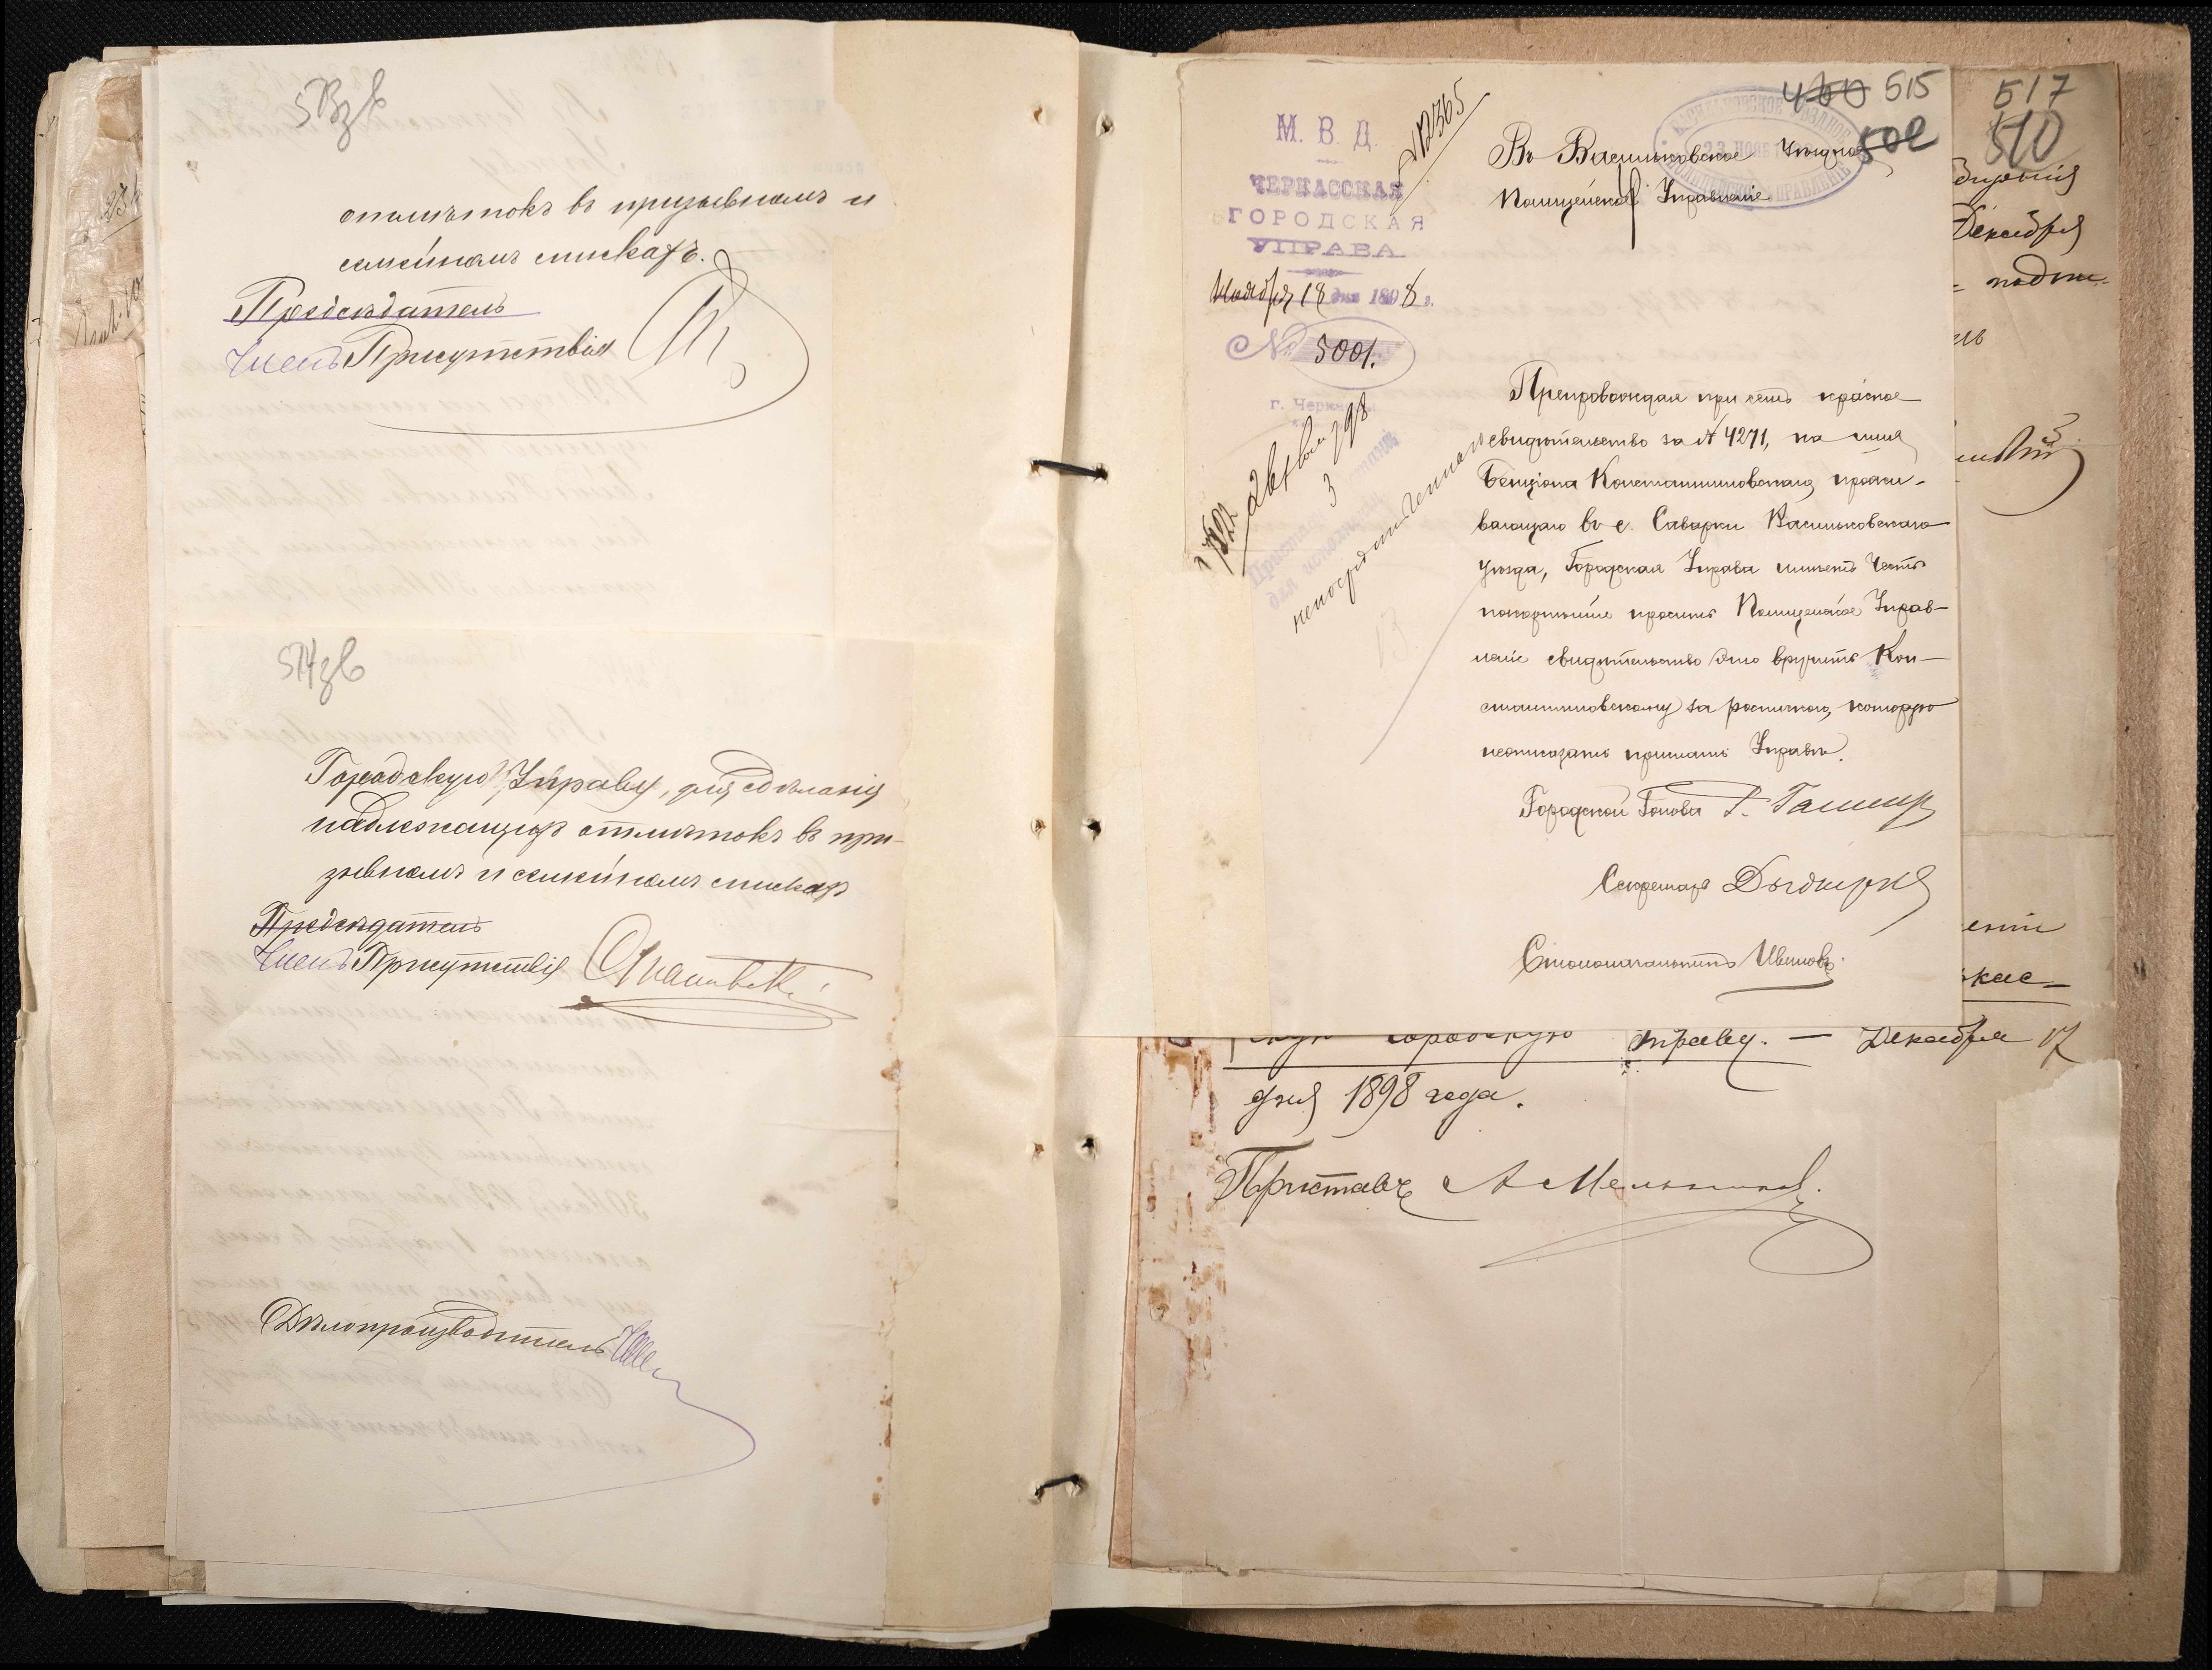 573 зв
отмѣтокъ въ призывномъ и
семейномъ спискахъ.
Предсѣдатель
Членъ Присутствія
574 зв
Городскую Управу, для сдѣланія
надлежащихъ отмѣтокъ въ при-
зывномъ и семейномъ спискахъ
Предсѣдатель
Членъ Присутствія
Дѣлопроизводитель
М. В. Д.
ЧЕРКАССКАЯ
ГОРОДСКАЯ
УПРАВА
Ноября 18 дня 1898 г.
№ 5001.
г. Черкассы
№12365
460 515
502
Въ Васильковское Уѣздное
Полицейское Управленіе
23 НОЯБ
Препровождая при семъ красное
свидѣтельство за № 4271, на имя
Бенціона Константиновскаго, прожи-
вающаго въ с. Саварки Васильковскаго
уѣзда, Городская Управа имѣетъ честь
покорнѣйше просить Полицейское Управ-
леніе свидѣтельство это вручить Кон-
стантиновскому за роспискою, которую
неотказать прислать Управѣ.
Городской Голова
Секретарь
Столоначальникъ Ивановъ
517
510
Декабря
кас-
скую городскую Управу. — Декабря 17
дня 1898 года.
Приставъ А Мельников